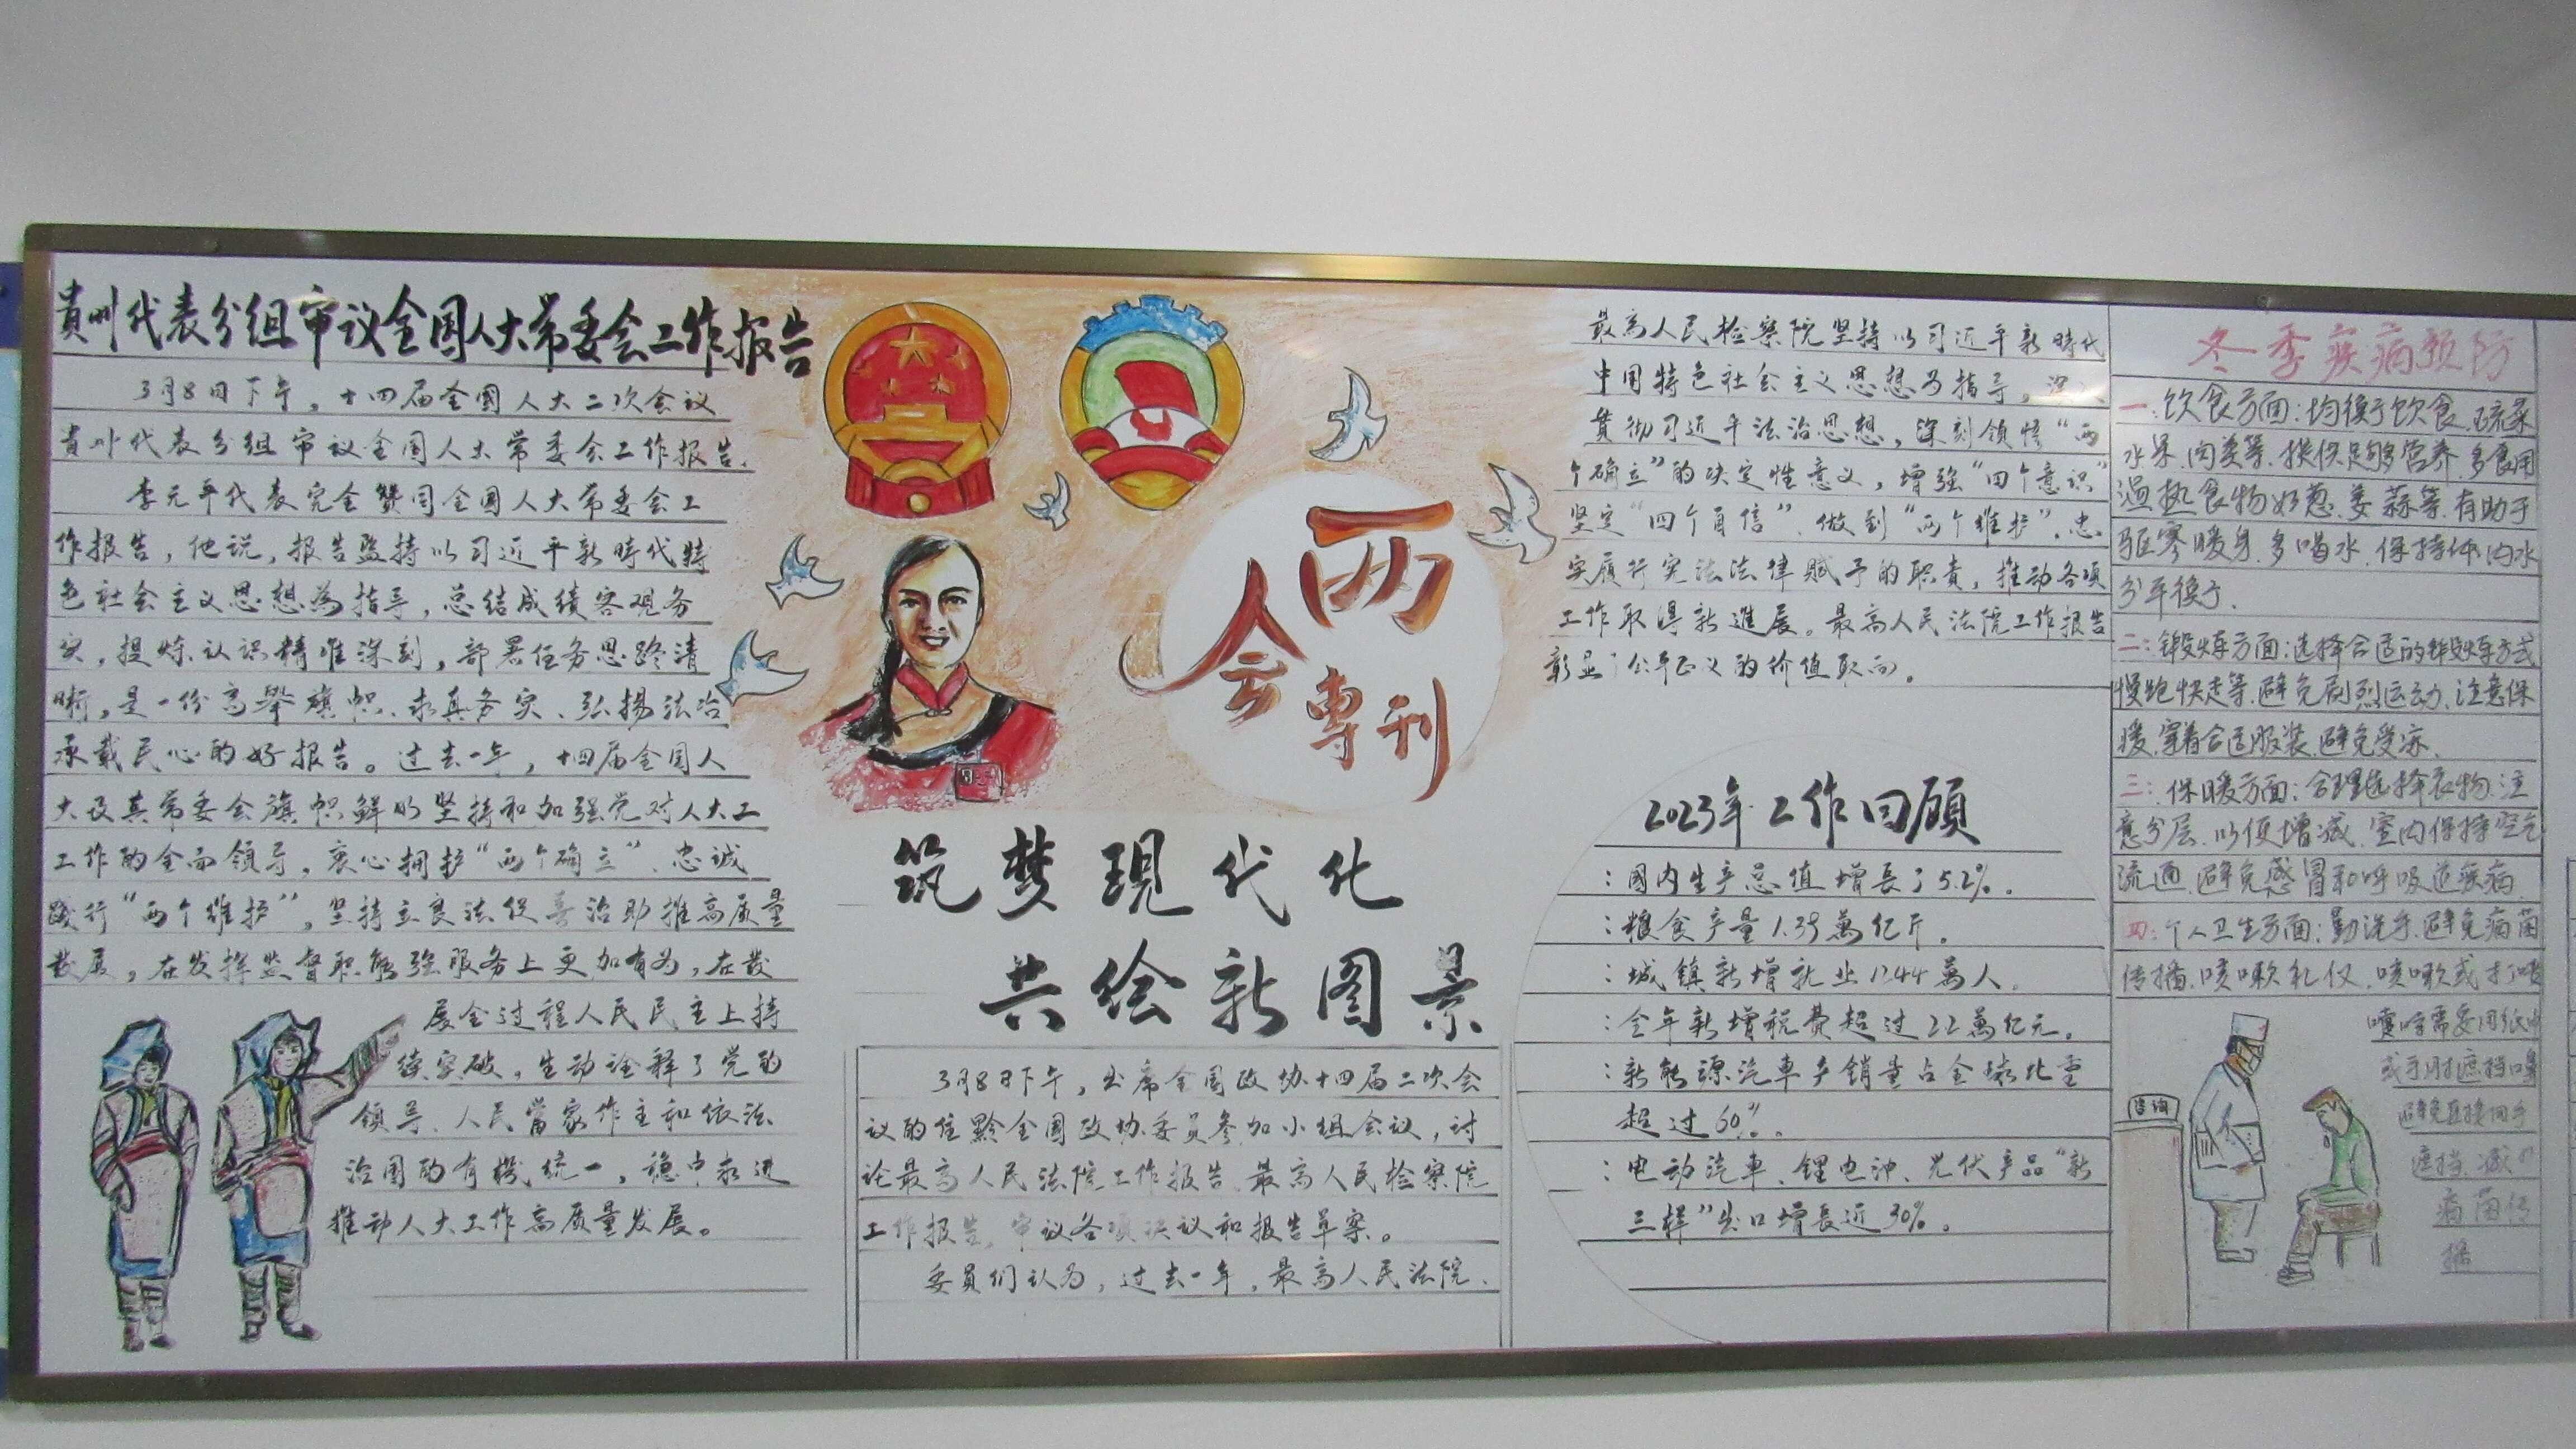 貴州代表分组审议全国人大常委会工作报告
3月8日下午，十四届全國人大二次会议
貴州代表分组审议全国人大常委会工作报告.
李元平代表完全赞同全国人大常委会工
作报告，他说，报告坚持以习近平新時代特
色社会主义思想為指导，总结成绩客观务
实，提炼认识精准深刻，部署任务思路清
晰，是一份高舉旗帜、求真务实、弘揚法治
承载民心的好报告。过去一年，十四届全国人
大及其常委会旗帜鲜明坚持和加强党对人大工
工作的全面领导，衷心拥护“两个确立”、忠诚
践行“两个维护”，坚持立良法促善治助推高质量
發展，在发挥监督职能强服务上更加有为，在發
展全过程人民民主上持
续突破，生动诠释了党的
领导、人民當家作主和依法
治国的有機统一，稳中求进
推动人大工作高质量发展。
两
会
專刊
筑梦現代化
共绘新图景
3月8日下午，出席全国政协十四届二次会
议的住黔全國政协委员参加小组会议，讨
论最高人民法院工作报告、最高人民检察院
工作报告，审议各项决议和报告草案。
委員们认为，过去一年，最高人民法院、
最高人民检察院坚持以习近平新時代
中国特色社会主义思想为指导，深入
贯彻习近平法治思想，深刻领悟“两
个确立”的决定性意义，增强“四个意识”
坚定“四个自信”、做到“两个维护”，忠
实履行宪法法律赋予的职责，推动各项
工作取得新進展。最高人民法院工作报告
彰显了公平正义的价值取向。
2023年工作回顧
：國内生产总值增長了5.2%.
：粮食产量1.39萬亿斤.
：城镇新增就业1244萬人.
：全年新增税费超过2.2萬亿元.
：新能源汽車产销量占全球比重
超过60%.
：电动汽車、锂电池、光伏产品“新
三样”出口增長近30%.
冬季疾病预防
一：饮食方面：均衡于饮食，蔬菜
水果、肉类等，提供足够营养，多食用
温热食物如葱、姜、蒜等，有助于
驱寒暖身，多喝水，保持体内水
分平衡于.
二：锻炼方面：选择合适的锻炼方式
慢跑快走等，避免剧烈运动，注意保
暖，穿着合适服装，避免受冻.
三：保暖方面：合理选择衣物，注
意分层，以便增减，室内保持空气
流通，避免感冒和呼吸道疾病.
四：个人卫生方面：勤洗手，避免病菌
传播，咳嗽礼仪，咳嗽或打喷
嚏时需要用纸巾
或手肘遮挡口鼻
避免直接用手
遮挡，减少
病菌传
播
咨询